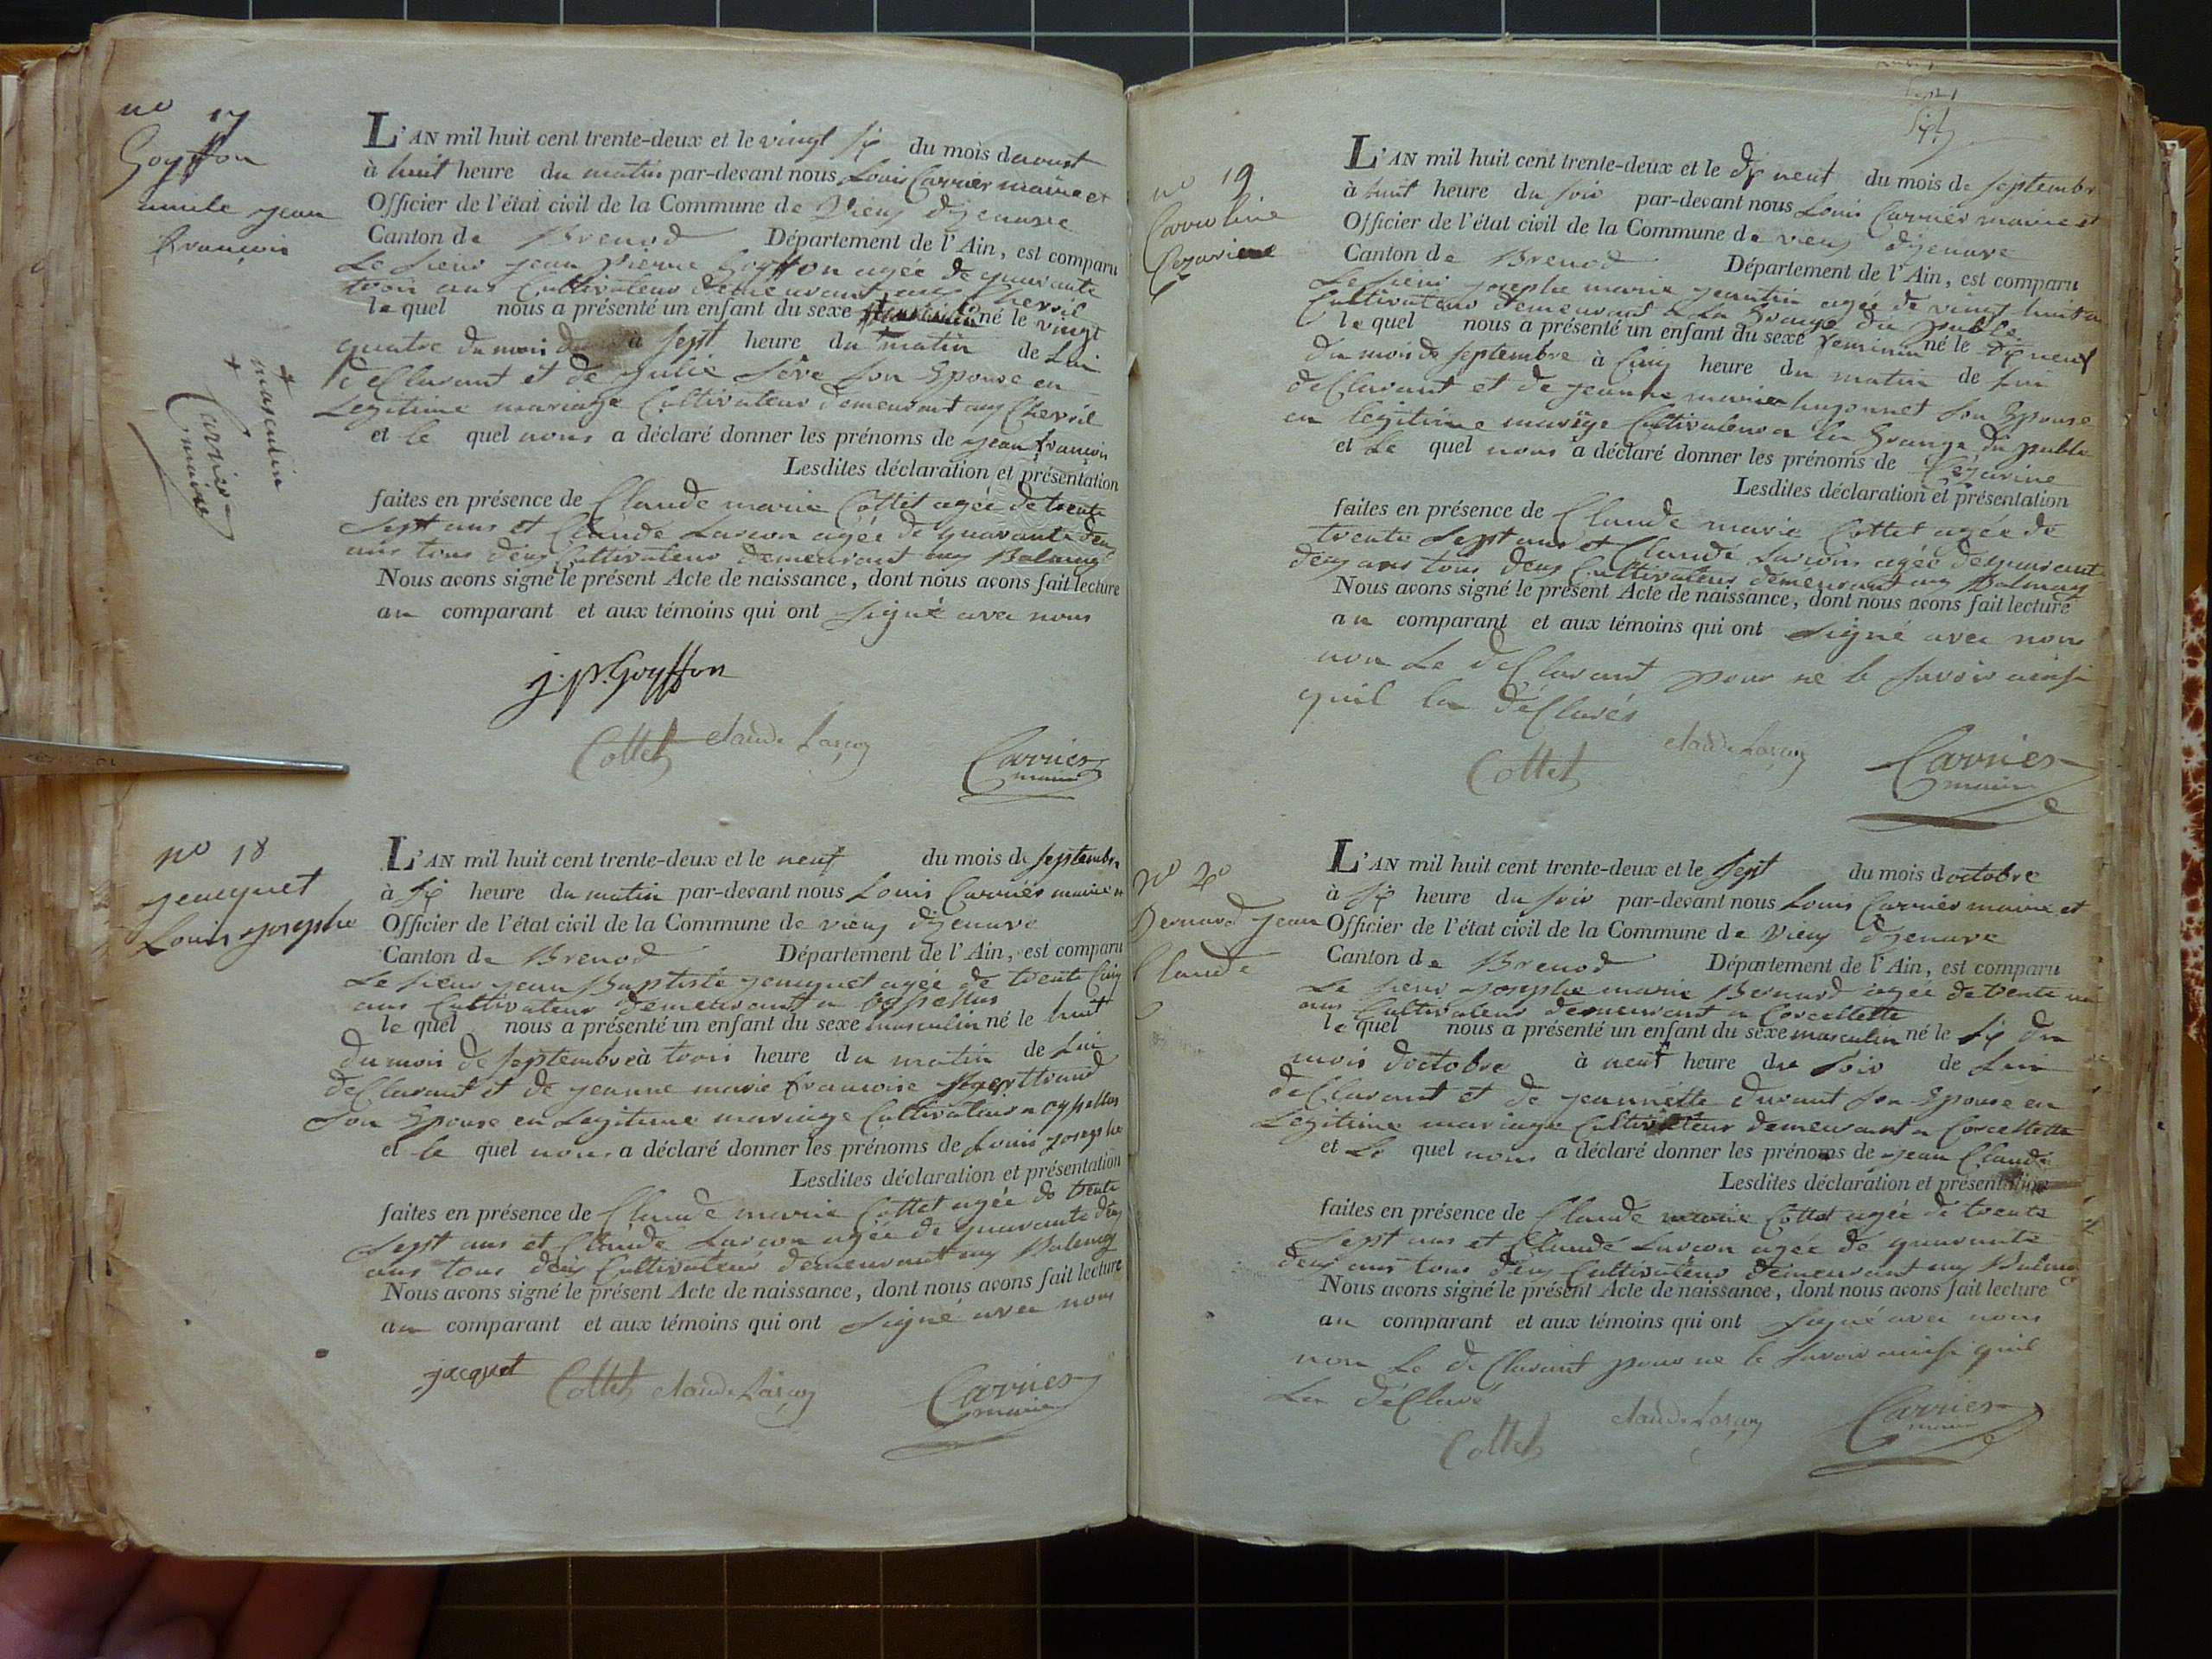 no 17
Goyffon
emile jean
françois
L'AN mil huit cent trente-deux et le vingt six du mois daoust
à huit heure du matin par-devant nous Louis Carrier maire et
Officier de l'état civil de la Commune de Vieux dizenave
Canton de Brenod Département de l'Ain, est comparu
Le sieur jean pierre Goyffon agée de quarante
trois ans Cultivateur demeurant aux Chevril
le quel nous a présenté un enfant du sexe né le vingt
quatre du mois à sept heure du matin de Lui
déClarant et de julie Sève son Epouse en
Legitime mariage Cultivateur demeurant aux Chevril
et le quel nous a déclaré donner les prénoms de jean françois
Lesdites déclaration et présentation
faites en présence de Claude marie Cottet agée de trente
sept ans et Claude Larcon agée de quarante deux
ans tous deux Cultivateur demeurant aux Balmay
Nous avons signé le présent Acte de naissance, dont nous avons fait lecture
au comparant et aux témoins qui ont signé avec nous
+ masculin
+ Carrier
maire
j.p. Goyffon
Cottet claude Larçon Carrier
maire
no 18
jeucquet
Louis josephe
L'AN mil huit cent trente-deux et le neuf du mois de septembre
à six heure du matin par-devant nous Louis Carrier maire et
Officier de l'état civil de la Commune de vieux dizenave
Canton de Brenod Département de l'Ain, est comparu
Le sieur jean Baptiste jeucquet agée de trente Cinq
ans Cultivateur demeurant a
le quel nous a présenté un enfant du sexe masculin né le huit
du mois de septembre à trois heure du matin de Lui
déClarant et de jeanne marie francoise
son Epouse en Legitime mariage Cultivateur a
et le quel nous a déclaré donner les prénoms de Louis josephe
Lesdites déclaration et présentation
faites en présence de Claude marie Cottet agée de trente
sept ans et Claude Larcon agée de quarante deux
ans tous deux Cultivateur demeurant aux Balmay
Nous avons signé le présent Acte de naissance, dont nous avons fait lecture
au comparant et aux témoins qui ont signé avec nous
jacquet Cottet claude Larçon Carrier
maire
no 19
Carroline
Cezarine
L'AN mil huit cent trente-deux et le dix neuf du mois de septembre
à huit heure du soir par-devant nous Louis Carrier maire et
Officier de l'état civil de la Commune de vieux dizenave
Canton de Brenod Département de l'Ain, est comparu
Le sieur josephe marie jeantin agée de vingt huit an
Cultivateur demeurant a La Grange du puble
le quel nous a présenté un enfant du sexe feminin né le dix neuf
du mois de septembre à Cinq heure du matin de Lui
déClarant et de jeanne marie hugonnet son Epouse
en legitime mariage Cultivateur a la Grange du puble
et Le quel nous a déclaré donner les prénoms de Cezarine
Lesdites déclaration et présentation
faites en présence de Claude marie Cottet agée de
trente sept ans et Claude Larcon agée de quarante
deux ans tous deux Cultivateur demeurant aux Balmay
Nous avons signé le présent Acte de naissance, dont nous avons fait lecture
au comparant et aux témoins qui ont signé avec nous
non Le déClarant pour ne le savoir ainsi
quil la déClarés
Cottet claude Larçon Carrier
maire
no 20
Bernard jean
Claude
L'AN mil huit cent trente-deux et le sept du mois doctobre
à six heure du soir par-devant nous Louis Carrier maire et
Officier de l'état civil de la Commune de Vieux dizenave
Canton de Brenod Département de l'Ain, est comparu
Le sieur josephe marie Bernard agée de trente un
ans Cultivateur demeurant a Corcellette
le quel nous a présenté un enfant du sexe masculin né le six du
mois doctobre à neuf heure du soir de Lui
déClarant et de jeannette durant son Epouse en
Legitime mariage Cultivateur demeurant a Corcellette
et Le quel nous a déclaré donner les prénoms de jean Claude
Lesdites déclaration et présentation
faites en présence de Claude marie Cottet agée de trente
sept ans et Claude Larcon agée de quarante
deux ans tous deux Cultivateur demeurant aux Balmay
Nous avons signé le présent Acte de naissance, dont nous avons fait lecture
au comparant et aux témoins qui ont signé avec nous
non Le déClarant pour ne le savoir ainsi quil
La déClaré
Cottet claude Larçon Carrier
maire